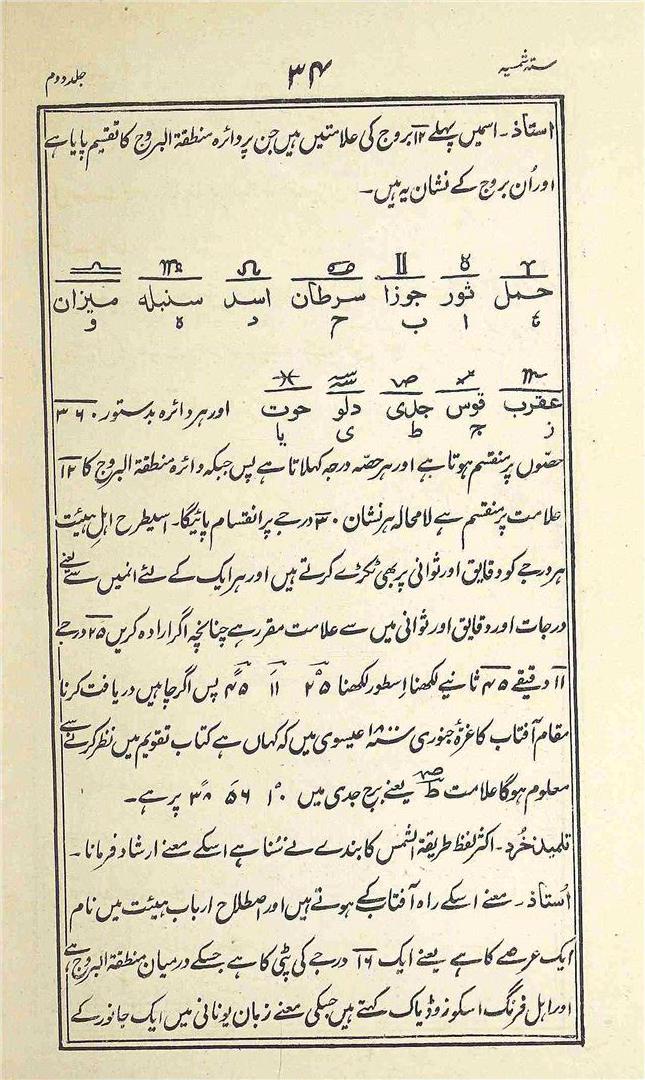 ستۂ شمسیہ ۳۴ جلد دوم
استاذ۔ اسمیں پہلے ۱۲ بروج کی علامتیں ہیں جن پر دائرہ منطقۃ البروج کا تقسیم پایا ہے
اور اُن بروج کے نشان یہ ہیں۔
♈ ♉ ♊ ♋ ♌ ♍ ♎
حمل ثور جوزا سرطان اسد سنبلہ میزان
ا ب ح د ہ و
♏ ♐ ♑ ♒ ♓
عقرب قوس جدی دلو حوت اور ہر دائرہ بدستور ۳۶۰
ز ط ی یا
حصّوں پر منقسم ہوتا ہے اور ہر حصّہ درجہ کہلاتا ہے پس جبکہ دائرہ منطقۃ البروج کا ۱۲
علامت پر منقسم ہے لامحالہ ہر نشان ۳۰ درجے پر انقسام پائیگا۔ اسیطرح اہلِ ہیئت
ہر درجے کو دقایق اور ثوانی پر بھی ٹکڑے کرتے ہیں اور ہر ایک کے لئے انمیں سے یعنے
درجات اور دقایق اور ثوانی میں سے علامت مقرر ہے چنانچہ اگر ارادہ کریں ۲۵ درجے
۱۱ دقیقے ۴۵ ثانیے لکھنا اِسطور لکھنا ۲۵° ۱۱َ ۴۵ً پس اگر چاہیں دریافت کرنا
مقام آفتاب کا غرۂ جنوری عیسوی میں کہ کہاں ہے کتاب تقویم میں نظر کرنے سے
معلوم ہوگا علامت ط یعنے برج جدی میں ۱۰° ۵۶َ ۳۸ً پر ہے۔
تلمیذ خُرد۔ اکثر لفظ طریقۃ الشمس کا بندے نے سُنا ہے اسکے معنے ارشاد فرمانا۔
اُستاذ۔ معنے اسکے راہ آفتاب کے ہوتے ہیں اور اصطلاح ارباب ہیئت میں نام
ایک عرصے کا ہے یعنے ایک ۱۶ درجے کی پٹی کا ہے جسکے درمیان منطقۃ البروج ہے
اور اہل فرنگ اسکو زوڈیاک کہتے ہیں جسکی معنے زبان یونانی میں ایک جانور کے